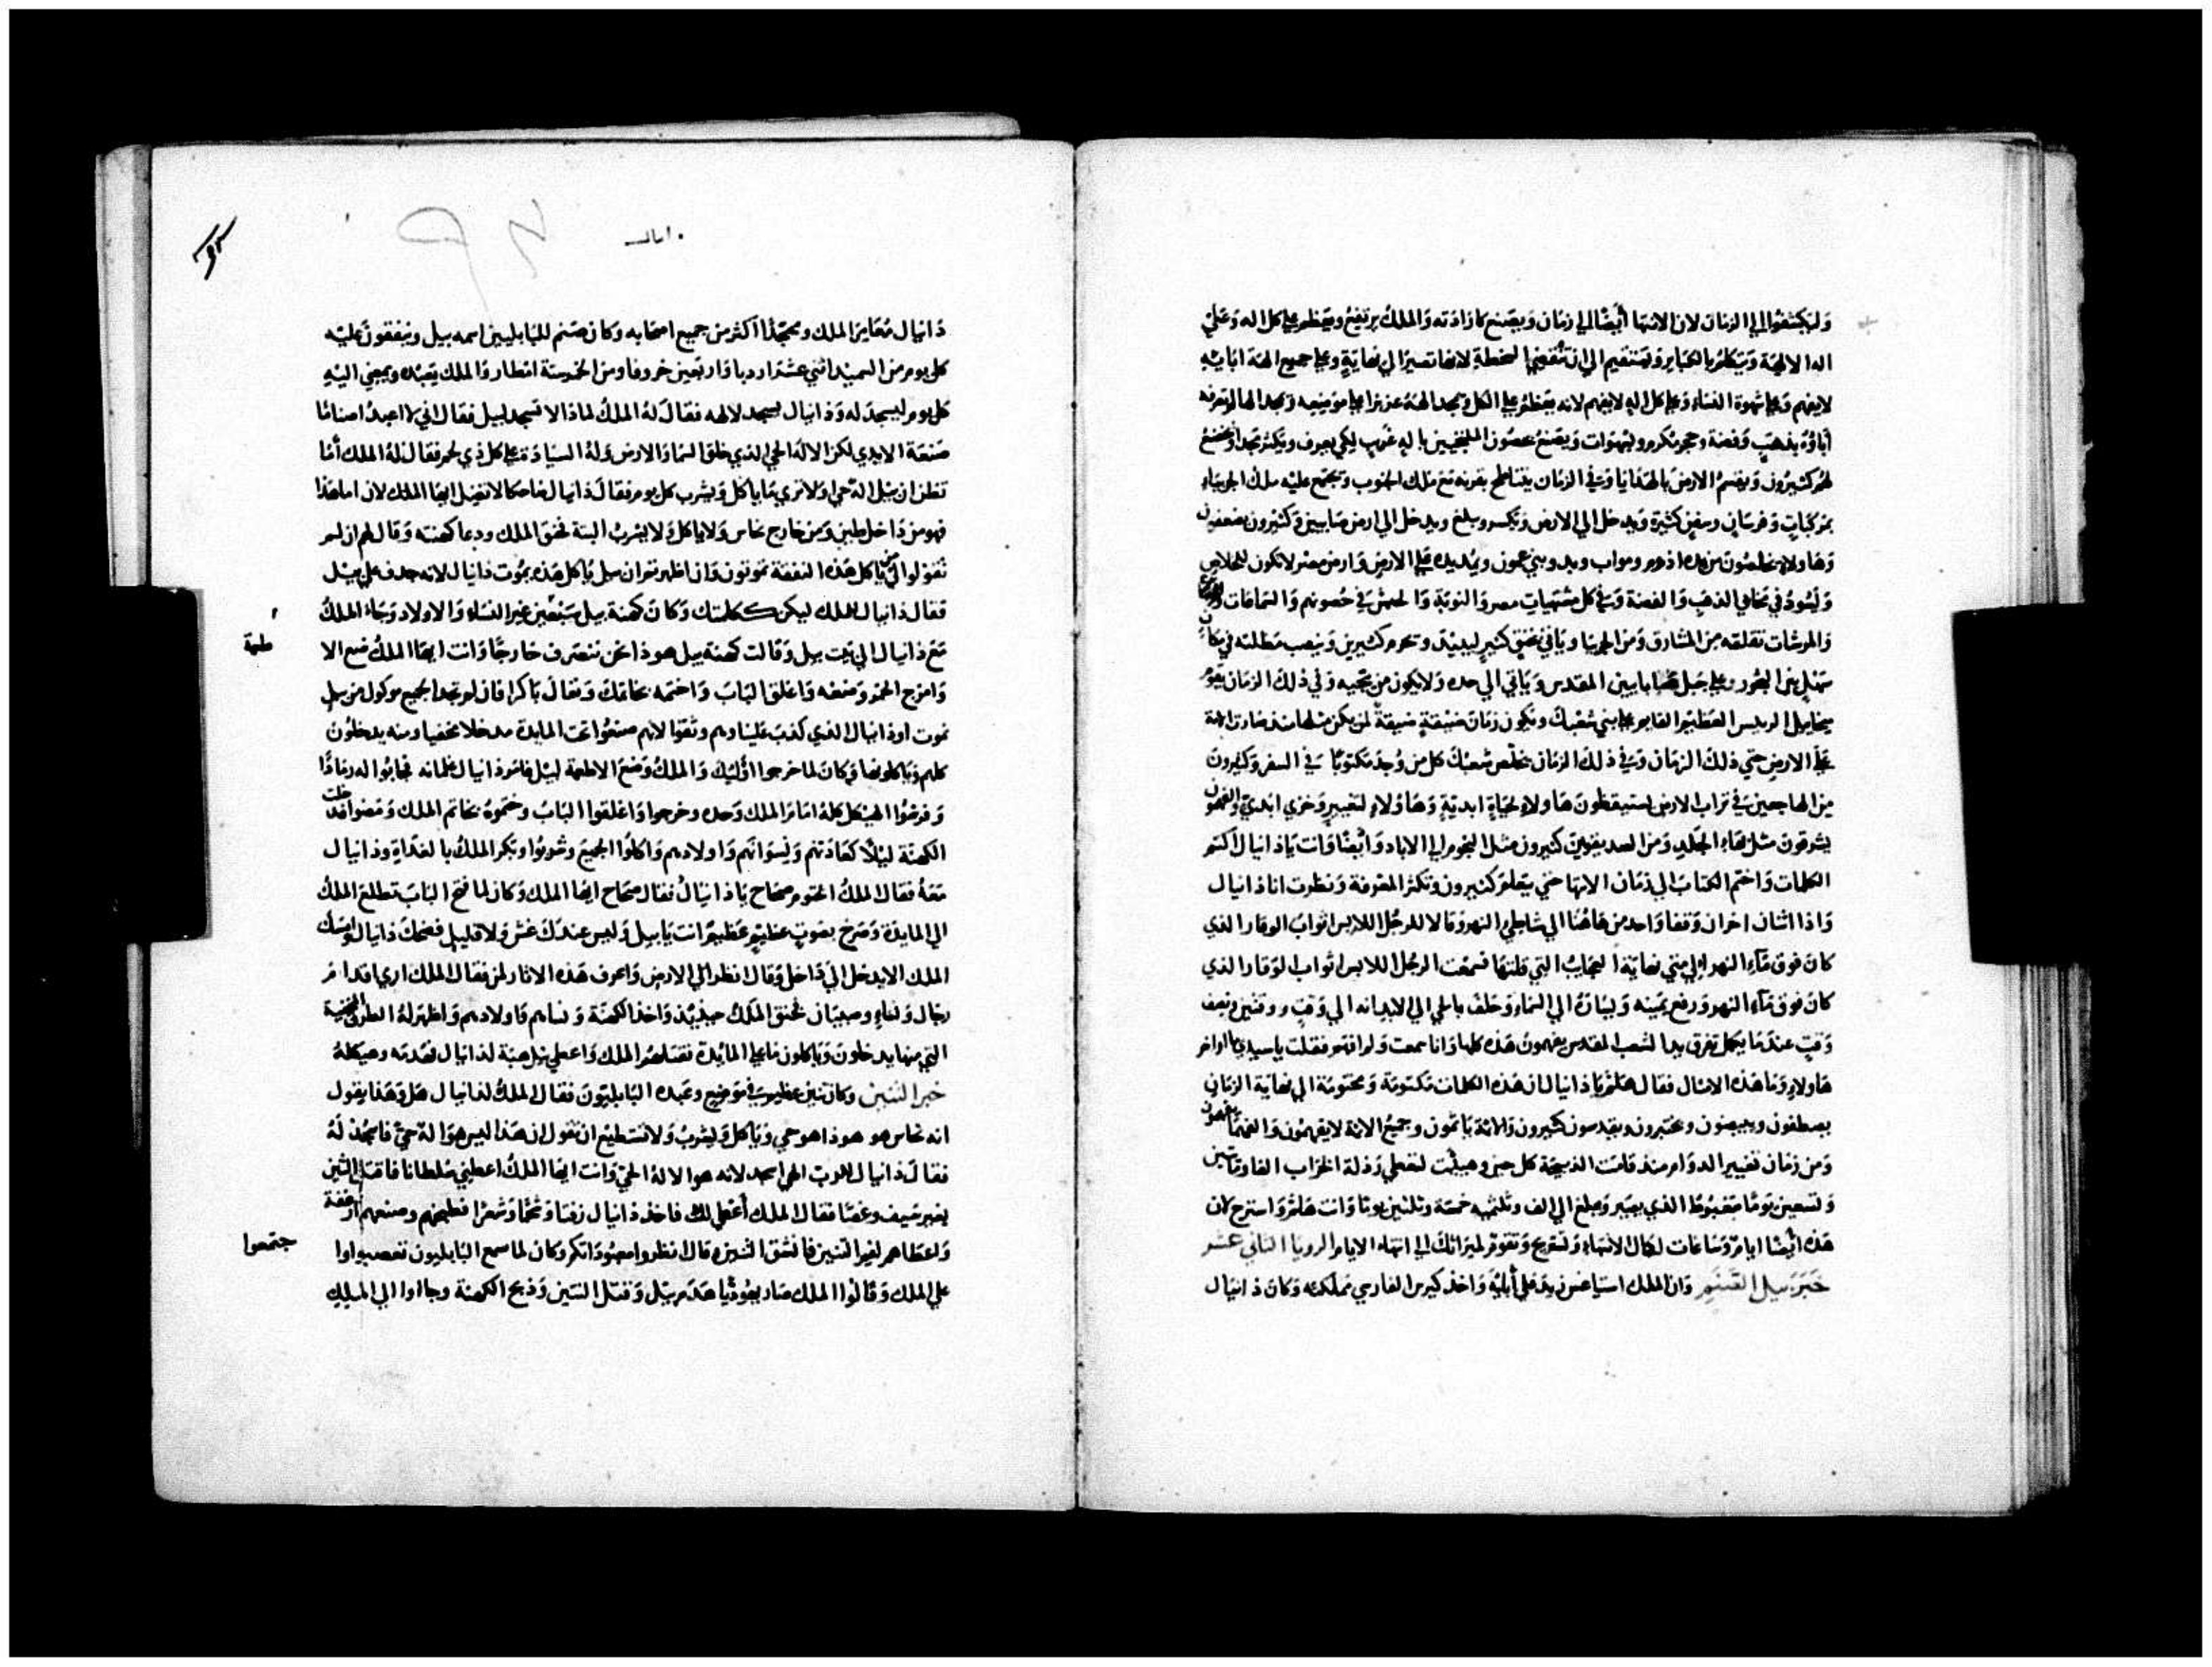 وليكشفوا الي الزمان لان الانتها ايضا الي زمان ويصنع كارادته والملك يرتفع ويتعظم علي كل اله وعلي
اله الالهة ويتكلم بالكباير ويستقيم الي ان تنقضي السخطة لانها تصير الي نهاية وعلي جميع الهة ابايه
لا يفهم وعلي شهوة النساء وعلي كل اله لا يفهم لانه يتعظم علي الكل ويمجد الهة عزيزا علي موضعه ويمجد الها لم تعرفه
اباؤه بذهب وفضة وحجر مكرم وبشهوات ويصنع حصون الملتجيين باله غريب لكي يعرف ويكثر مجدا ويخضع
لهم كثيرون ويقسم الارض بالهدايا وفي الزمان يتناطح بقرنه مع ملك الجنوب ويجتمع عليه ملك الجربياء
بمركبات وفرسان وسفن كثيرة ويدخل الي الارض ويكسر ويبلغ ويدخل الي ارض صابيين وكثيرون يضعفون
وهاولاء يخلصون من يده ادوم ومواب وبنو عمون ويمد يده علي الارض وارض مصر لا تكون للخلاص
ويسود في مخافي الذهب والفضة وفي كل مشتهيات مصر والنوبة والحبش في حصونهم والسماعات
تقلقه من المشارق ومن الجربيا وياتي بحنق كثير ليبيد ويحرم كثيرين وينصب مظلته في مكان
بين البحور وعلي جبل صابايين المقدس وياتي الي حده ولا يكون من ينجيه وفي ذلك الزمان يقوم
ميخاييل الرييس العظيم القايم علي بني شعبك ويكون زمان ضيقة ضيقة لم يكن مثلها منذ صارت امة
علي الارض حتي ذلك الزمان وفي ذلك الزمان يخلص شعبك كل من وجد مكتوبا في السفر وكثيرون
من الهاجعين في تراب الارض يستيقظون هاولاء لحياة ابدية وهاولاء لتعيير وخزي ابدي والفهمون
يشرقون مثل بهاء الجلد ومن الصديقين كثيرون مثل النجوم الي الاباد وايضا وانت يا ذانيال اكتم
الكلمات واختم الكتاب الي زمان الانتها حتي يتعلم كثيرون وتكثر المعرفة ونظرت انا ذانيال
واذا اثنان اخران وقفا واحد من هاهنا الي شاطي النهر وقالا للرجل اللابس اثواب الوقار الذي
كان فوق ماء النهر الي متي نهاية العجايب التي قلتها فسمعت الرجل اللابس اثواب الوقار الذي
كان فوق ماء النهر ورفع يمينه ويساره الي السماء وحلف بالحي الي الابد انه الي وقت ووقتين ونصف
وقت عندما يكمل تفرق يد الشعب المقدس يفهمون هذه كلها وانا سمعت ولم افهم فقلت يا سيدي ما اواخر
هاولاء وما هذه الامثال فقال هلم يا ذانيال لان هذه الكلمات مكتومة ومختومة الي نهاية الزمان
يصطفون ويبيضون ويختبرون ويقدسون كثيرون والاثمة ياثمون وجميع الاثمة لا يفهمون والفهما يفهمون
ومن زمان تغيير الدوام منذ قامت الذبيحة كل حين وهيئت لتعطي رذلة الخراب الف ومايتين
وتسعين يوما مغبوطا الذي يصبر ويبلغ الي الف وثلثميه خمسة وثلثين يوما وانت هلم واسترح لان
هذه ايضا ايام وساعات لكمال الانتهاء وتستريح وتقوم لميراثك الي انتهاء الايام الرويا الثاني عشر
خبر بيل الصنم وان الملك استياغس زيد علي أبايه واخذ كيرس الفارسي مملكته وكان ذانيال
ذانيال
ذانيال معاير الملك وممجدا اكثر من جميع اصحابه وكان صنم للبابليين اسمه بيل وينفقون عليه
كل يوم من السميد اثني عشر اردبا واربعين خروفا ومن الخمر ستة امطار والملك يعبده ويمضي اليه
كل يوم ليسجد له وذانيال يسجد لالهه فقال له الملك لماذا لا تسجد لبيل فقال اني لا اعبد اصناما
صنعة الايدي لكن الاله الحي الذي خلق السما والارض وله السيادة علي كل ذي لحم فقال له الملك أما
تظن ان بيل اله حي اولا تري ما ياكل ويشرب كل يوم فقال ذانيال ضاحكا لا تضل ايها الملك لان اما هذا
فهو من داخل طين ومن خارج نحاس ولا ياكل ولا يشرب البتة فحنق الملك ودعا كهنته وقال لهم ان لم
تقولوا لي من ياكل هذه النفقة تموتون وان اظهرتم ان بيل ياكل هذه يموت ذانيال لانه جدف علي بيل
فقال ذانيال للملك ليكن ككلمتك وكان كهنة بيل سبعين غير النساء والاولاد وجاء الملك
مع ذانيال الي بيت بيل وقالت كهنة بيل هوذا نحن ننصرف خارجا وانت ايها الملك ضع الا
طعمة
وامزج الخمر وضعه واغلق الباب واختمه بخاتمك وتعال باكرا فان لم تجد الجميع موكول من بيل
نموت او ذانيال الذي كذب علينا وهم وثقوا لانهم صنعوا تحت المايدة مدخلا مخفيا ومنه يدخلون
كلهم وياكلونها وكان لما خرجوا اوليك والملك وضع الاطعمة لبيل فامر ذانيال غلمانه فجابوا له رمادا
وفرشوا الهيكل كله امام الملك وحده وخرجوا واغلقوا الباب وختموه بخاتم الملك ومضوا فدخلت
الكهنة ليلا كعادتهم ونسوانهم واولادهم واكلوا الجميع وشربوا وبكر الملك بالغداة وذانيال
معه فقال الملك الختوم صحاح يا ذانيال فقال صحاح ايها الملك وكان لما فتح الباب تطلع الملك
الي المايدة وصرخ بصوت عظيم عظيم انت يا بيل وليس عندك غش ولا قليل فضحك ذانيال وامسك
الملك الا يدخل الي داخل وقال انظر الي الارض واعرف هذه الاثار لمن فقال الملك اري اقدام
رجال ونساء وصبيان فحنق الملك حينيذ واخذ الكهنة ونساهم واولادهم واظهر له الطرق المخفية
التي منها يدخلون وياكلون ما علي المايدة فقتلهم الملك واعطي بيل هبة لذانيال فهدمه وهيكله
خبر التنين وكان تنين عظيم في موضع وعبده البابليون فقال الملك لذانيال هل وهذا يقول
انه نحاس هو هوذا هو حي وياكل ويشرب ولا تستطيع ان تقول ان هذا ليس هو اله حي فاسجد له
فقال ذانيال للرب الهي اسجد لانه هو الاله الحي وانت ايها الملك اعطني سلطانا فاقتل التنين
بغير سيف وعصا فقال الملك أعطي لك فاخذ ذانيال زفتا وشحما وشعرا فطبخهم وصنعهم ارغفة
واعطاهم لفم التنين فانشق التنين وقال انظروا معبوداتكم وكان لما سمع البابليون تعصبوا وا
جتمعوا
علي الملك وقالوا الملك صار يهوديا هدم بيل وقتل التنين وذبح الكهنة وجاوا الي الملك